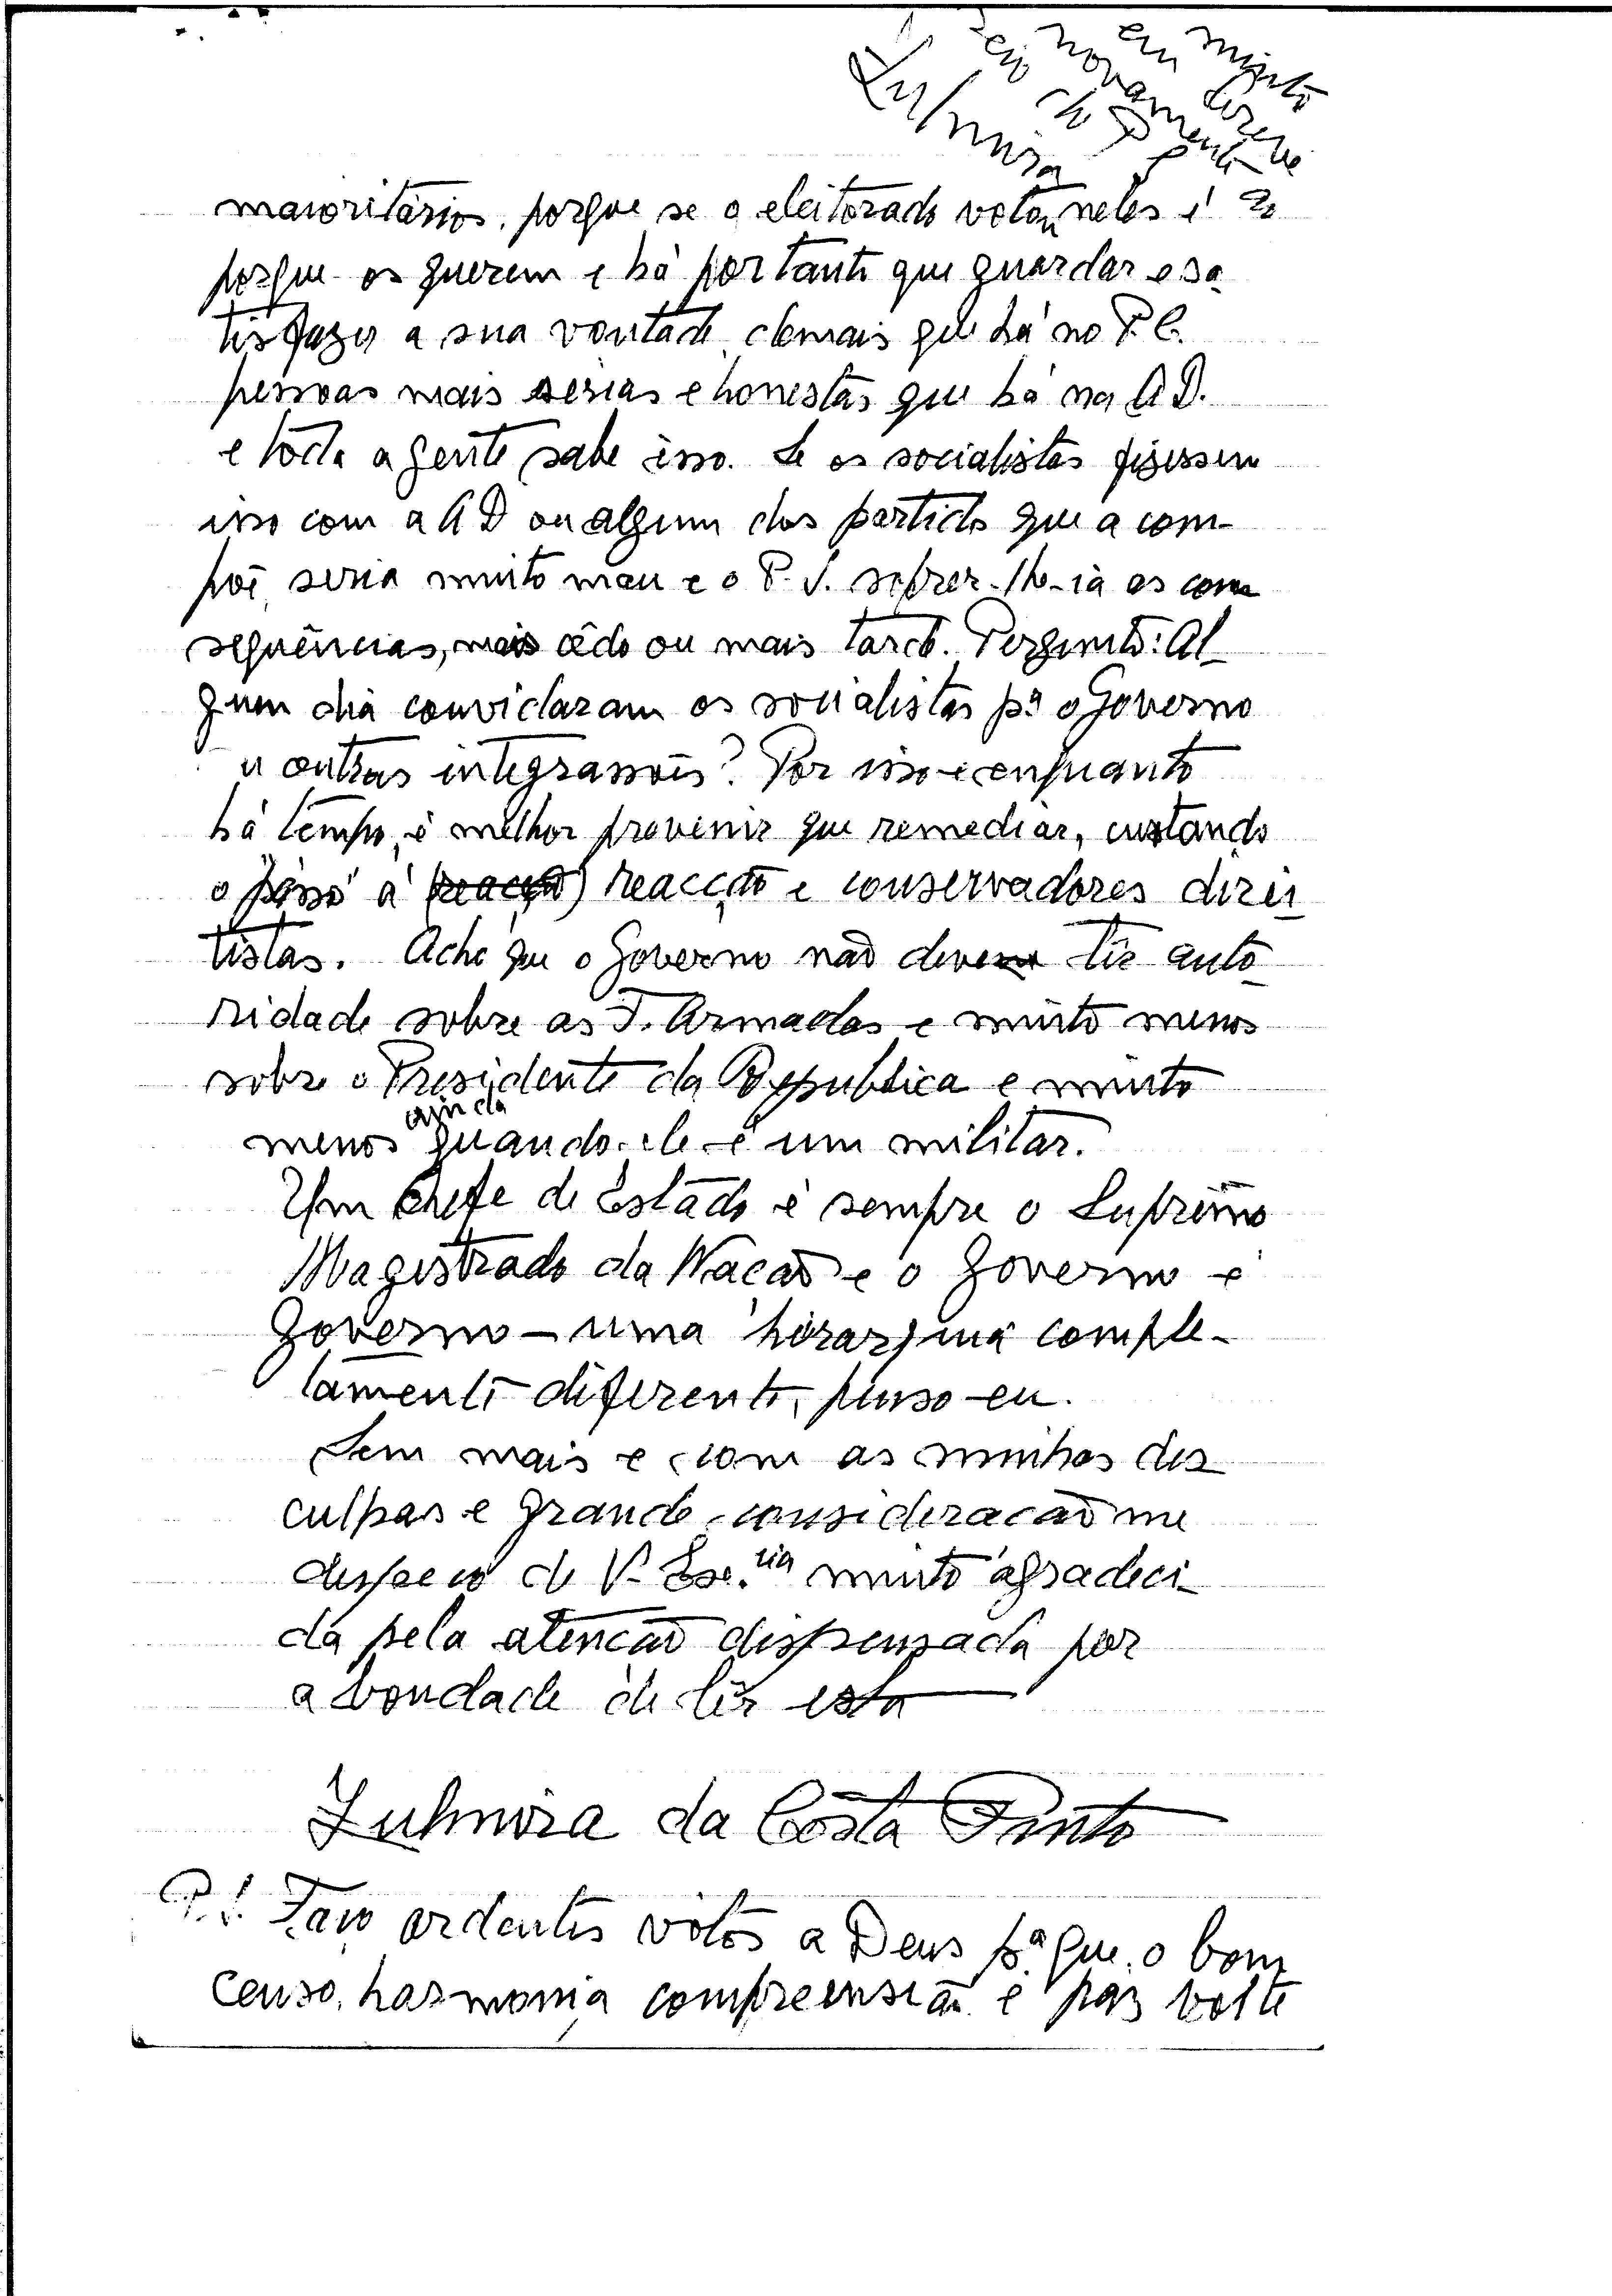 em muito breve
novamente
do P
Zulmira
maioritários, porque se o eleitorado votou neles é
porque os querem e há portanto que guardar e sa
tisfazer a sua vontade, demais que há no P.C.
pessoas mais serias e honestas que há na A D.
e toda a gente sabe isso. Se os socialistas fizessem
isso com a A D ou algum dos partidos que a com-
põe, seria muito mau e o P. S. sofrer-lhe-ia as con
sequências, mais cêdo ou mais tarde. Pergunto: Al-
gum dia convidaram os socialistas pª o Governo
u outras integrassões? Por isso e enquanto
há tempo, é melhor prevenir que remediar, custando
o passo à (reacção) reacção e conservadores direi
tistas. Acho que o Governo não deve têr auto
ridade sobre as F. Armadas e muito menos
sobre o Presidente da Republica e muito
menos ainda quando ele é um militar.
Um Chefe de Estado é sempre o Suprêmo
Magistrado da Nação e o Governo é
Governo – uma hierarquia comple-
tamente diferente, penso eu.
Sem mais e com as minhas des
culpas e grande consideração me
despeço de V. Exc.cia muito agradeci-
da pela atenção dispensada por
a bondade de lêr esta
Zulmira da Costa Pinto
P.S. Faço ardentes votos a Deus pª que o bom
censo, harmonia compreensão e paz volte